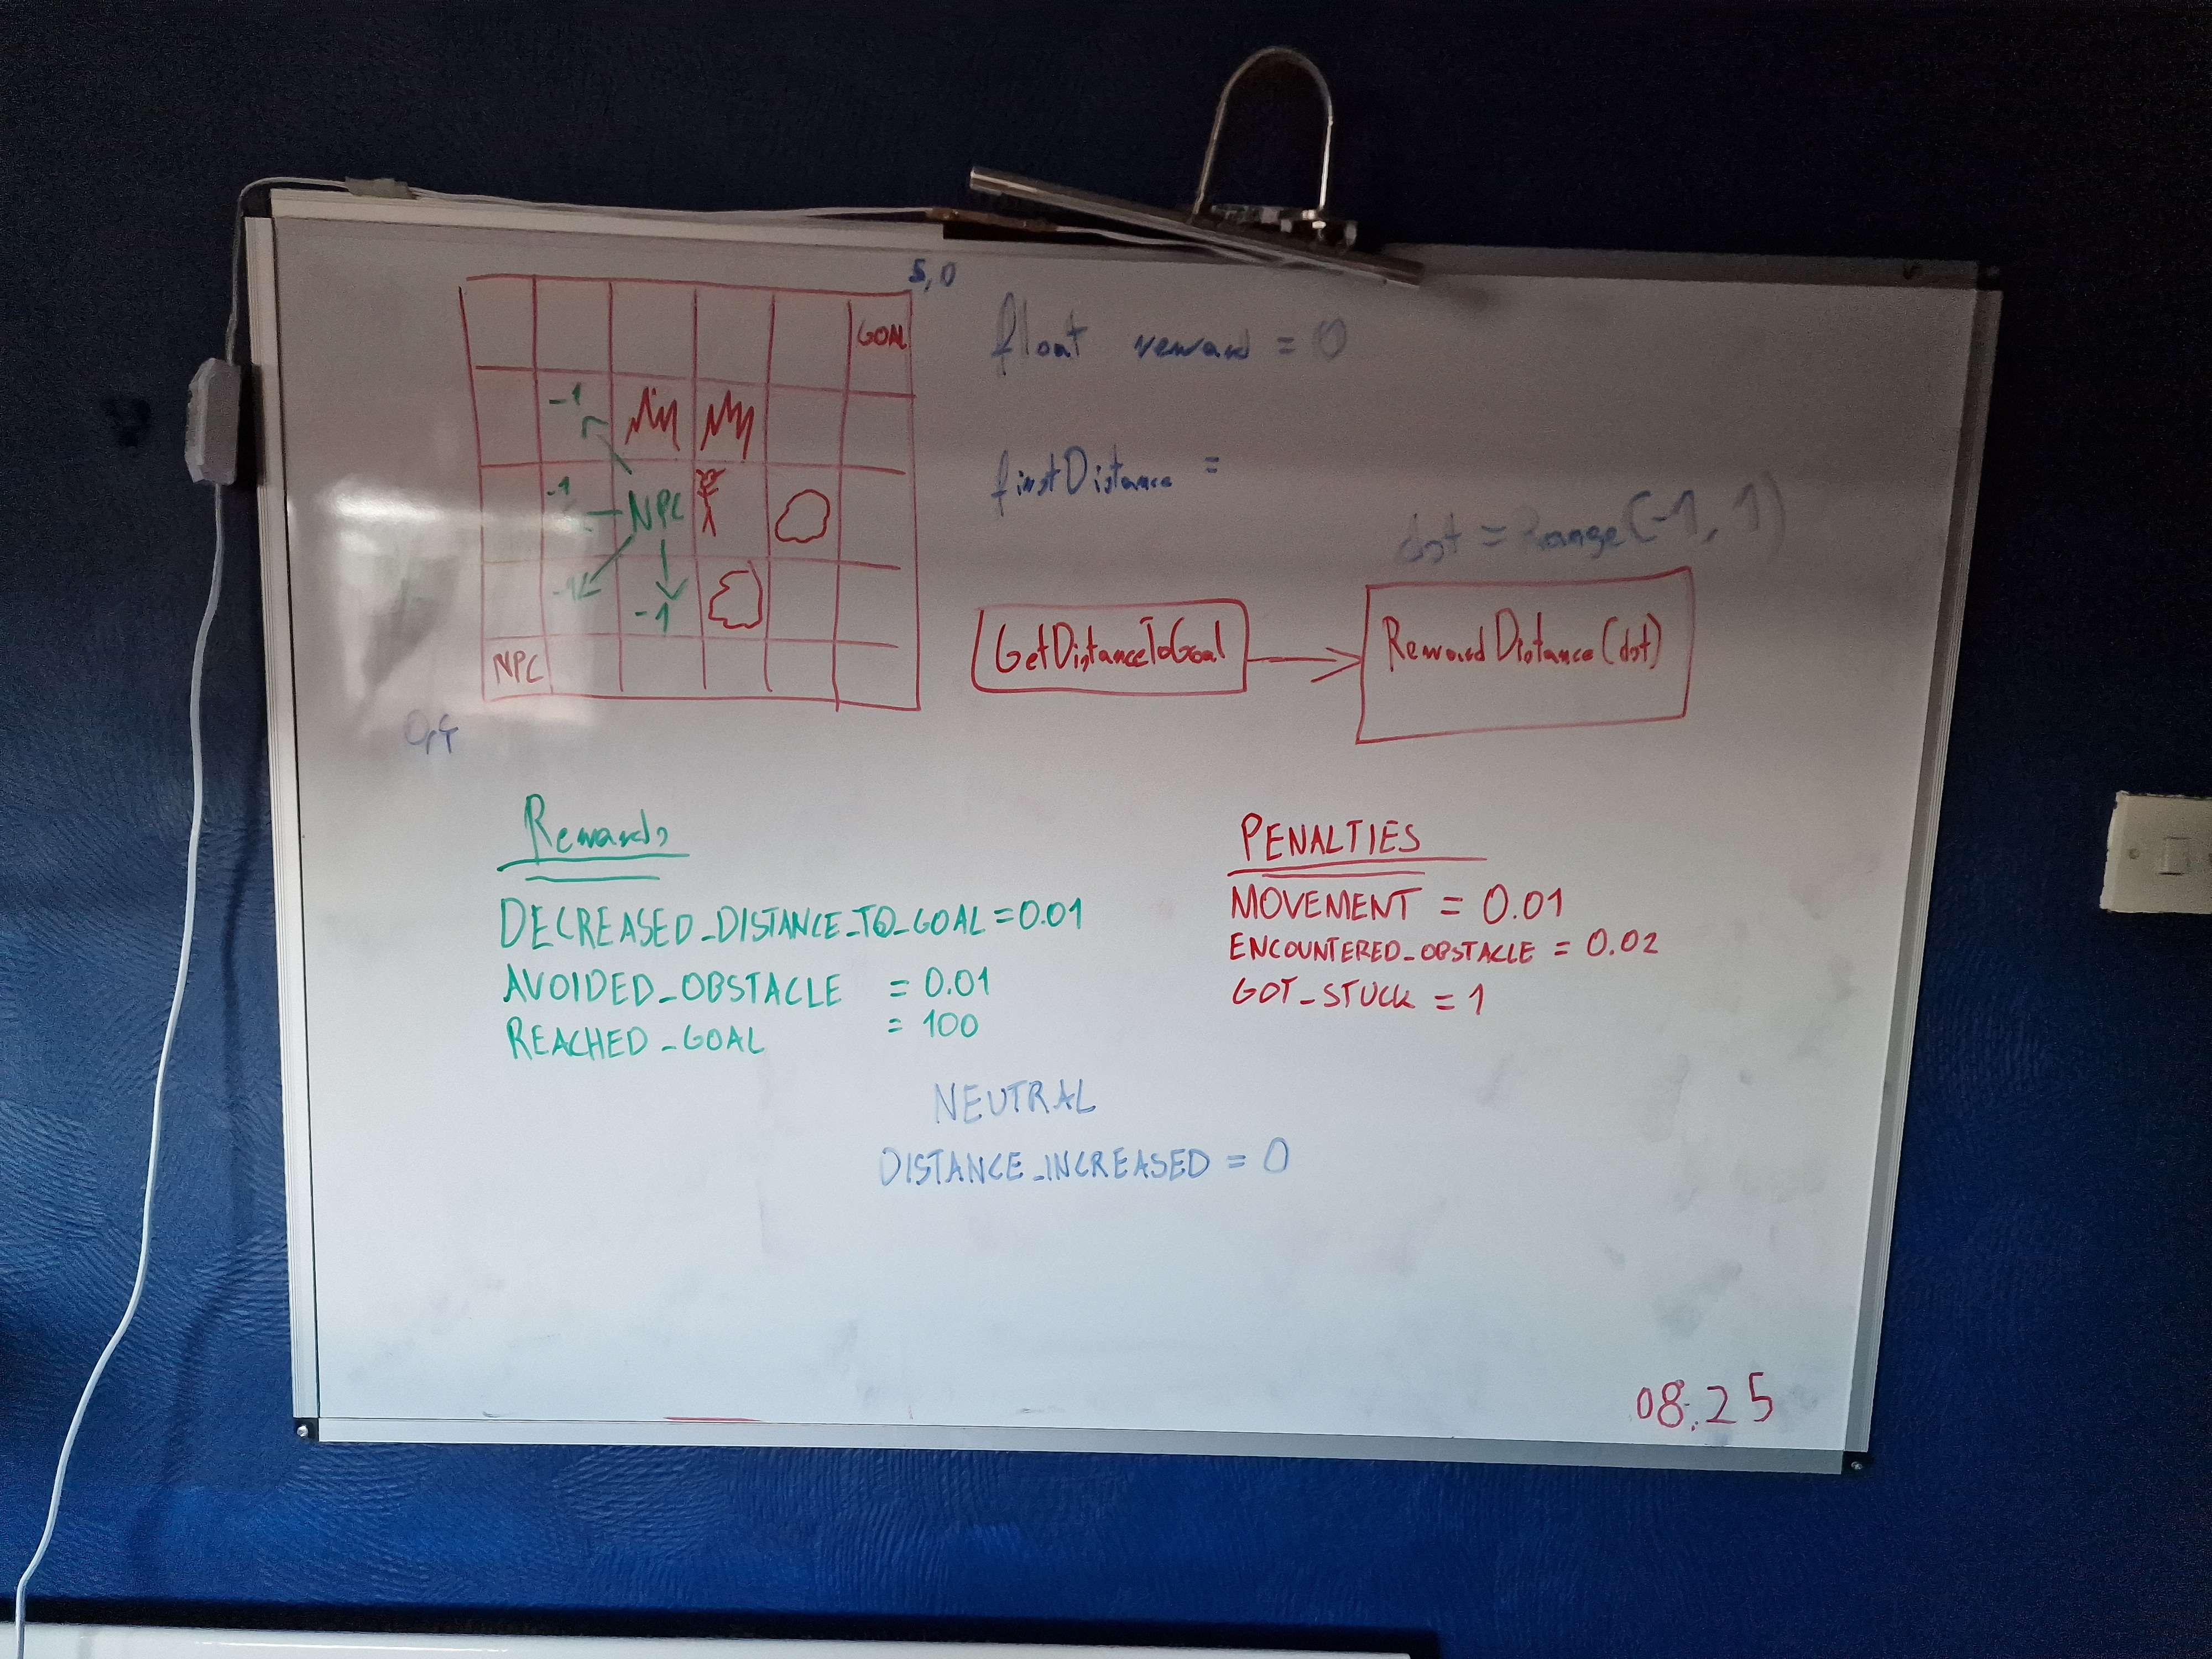 5,0
GOAL
-1
-1
NPC
-1
-1
NPC
0,4
float reward = 0
firstDistance =
dst = Range(-1, 1)
GetDistanceToGoal
RewardDistance(dst)
Rewards
DECREASED_DISTANCE_TO_GOAL = 0.01
AVOIDED_OBSTACLE = 0.01
REACHED_GOAL = 100
PENALTIES
MOVEMENT = 0.01
ENCOUNTERED_OBSTACLE = 0.02
GOT_STUCK = 1
NEUTRAL
DISTANCE_INCREASED = 0
08.25